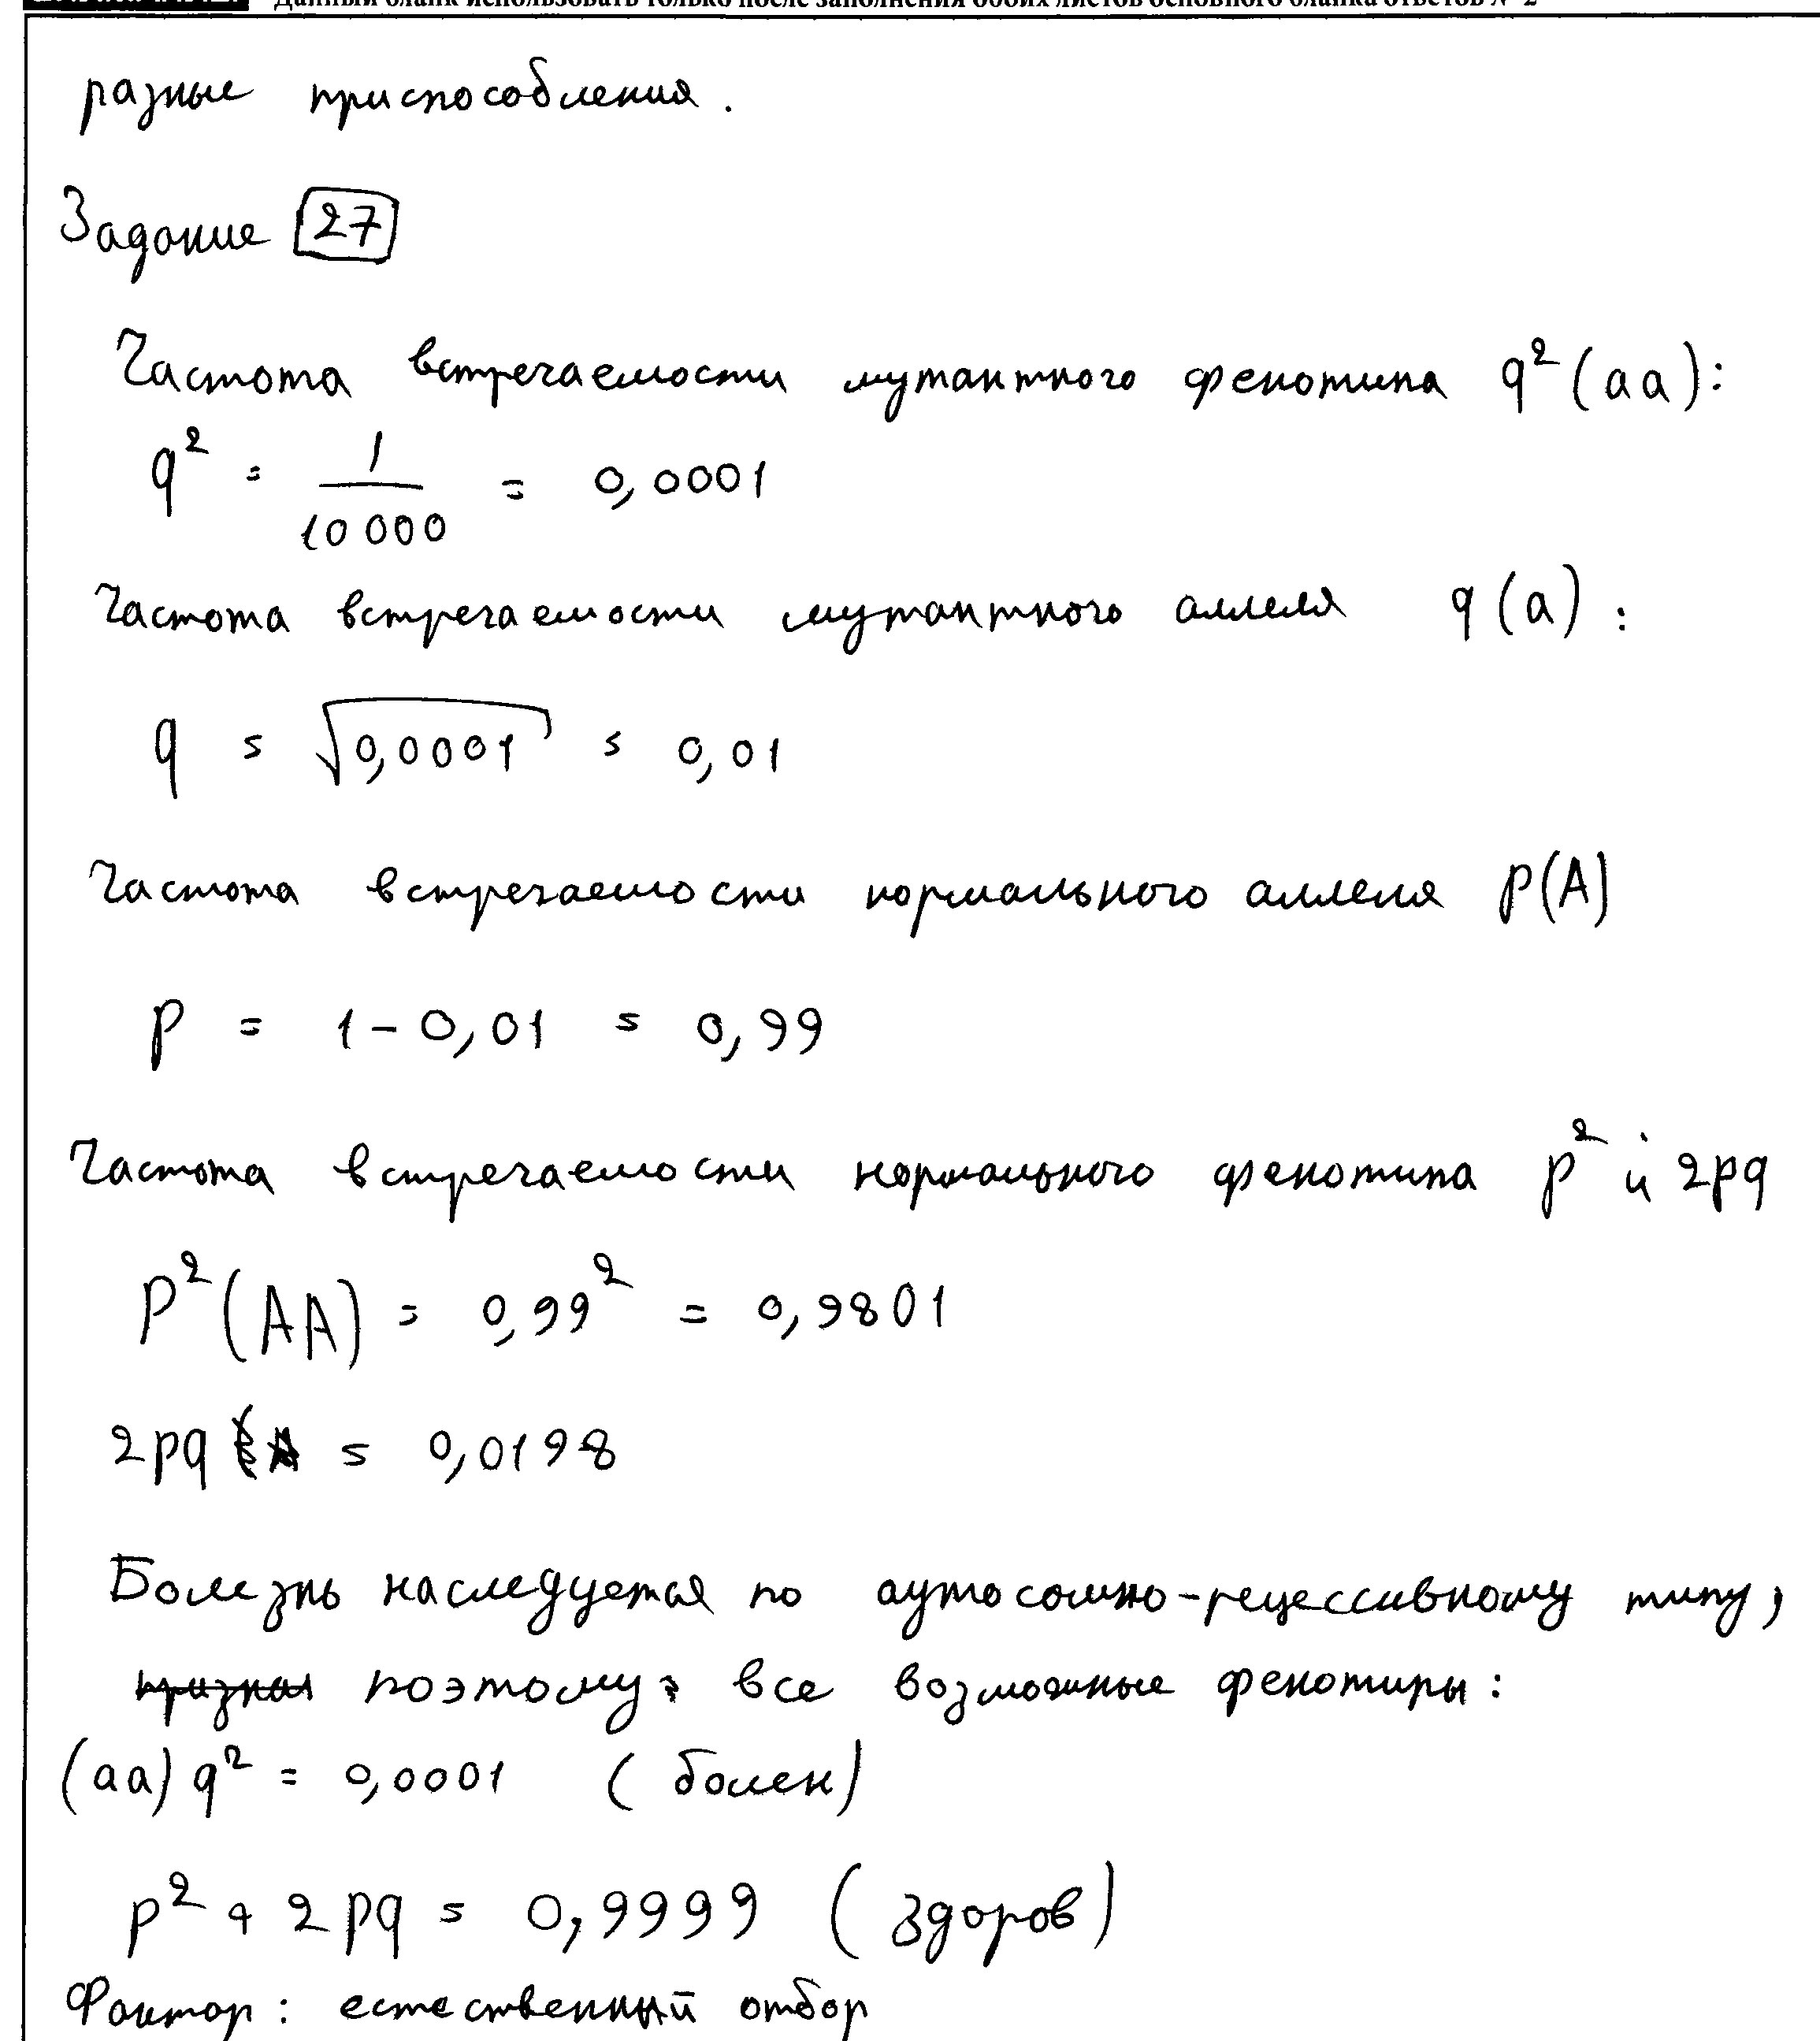 Данный бланк использовать только после заполнения обоих листов основного бланка ответов № 2
разные приспособления.
Задание 27
Частота встречаемости мутантного фенотипа q² (aa):
q² = 1/10 000 = 0,0001
Частота встречаемости мутантного аллеля q (a) :
q = √0,0001 = 0,01
Частота встречаемости нормального аллеля p(A)
p = 1 - 0,01 = 0,99
Частота встречаемости нормального фенотипа p² и 2pq
p² (AA) = 0,99² = 0,9801
2pq = 0,0198
Болезнь наследуется по аутосомно-рецессивному типу,
поэтому, все возможные фенотипы:
(aa) q² = 0,0001 (болен)
p² + 2pq = 0,9999 (здоров)
Фактор: естественный отбор